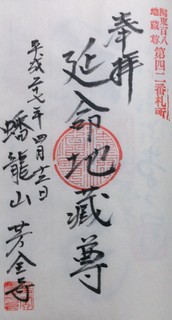 関東百八
地蔵尊
第四二番札所
奉拝
延命地蔵尊
平成二十七年四月
蟠龍山
芳全寺